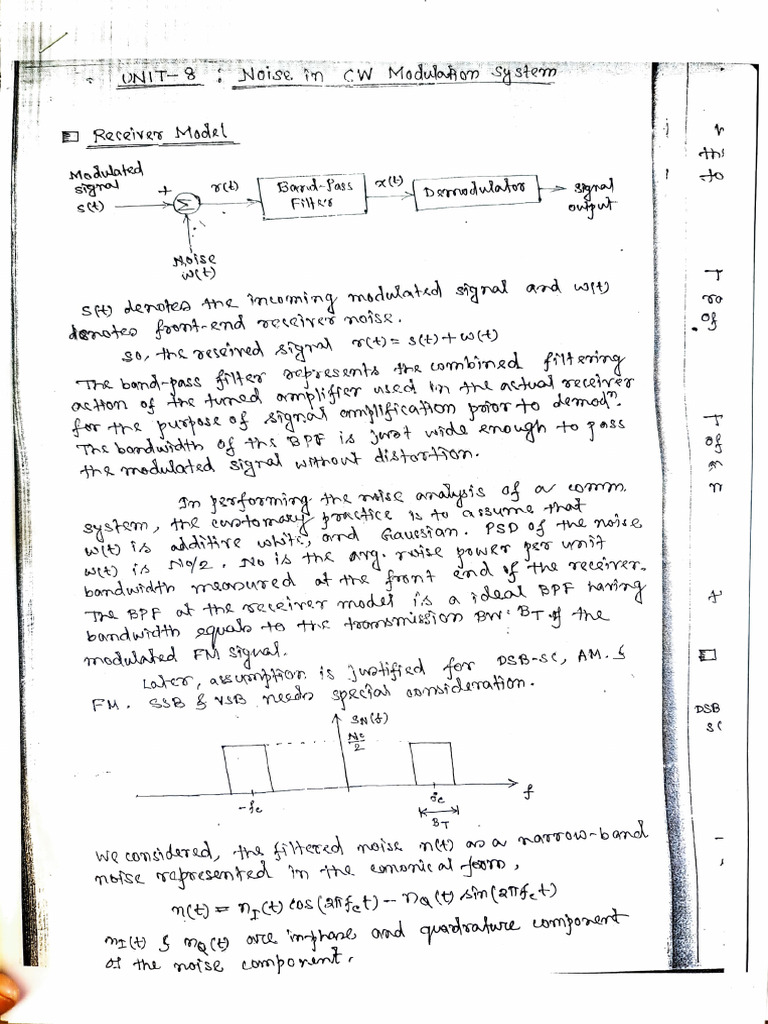 UNIT-8 : Noise in CW Modulation System
Receiver Model
Modulated
signal
s(t)
+
Σ
r(t)
Band-Pass
Filter
x(t)
Demodulator
signal
output
Noise
w(t)
S(t) denotes the incoming modulated signal and w(t)
denotes front-end receiver noise.
So, the reseived signal r(t) = s(t) + w(t)
The band-pass filter represents the combined filtering
action of the tuned amplifier used in the actual receiver
for the purpose of signal amplification prior to demodⁿ.
The bandwidth of the BPF is just wide enough to pass
the modulated signal without distortion.
In performing the noise analysis of a comm.
system, the customary practice is to assume that
w(t) is additive white, and Gaussian. PSD of the noise
w(t) is No/2. No is the avg. noise power per unit
bandwidth measured at the front end of the receiver.
The BPF at the receiver model is a ideal BPF having
bandwidth equals to the transmission BW: BT of the
modulated FM signal.
Later, assumption is justified for DSB-SC, AM. &
FM. SSB & VSB needs special consideration.
SN(f)
No/2
-fc
fc
f
BT
We considered, the filtered noise n(t) as a narrow-band
noise represented in the canonical form,
n(t) = nI(t) cos(2πfct) - nQ(t) sin(2πfct)
nI(t) & nQ(t) are in-phase and quadrature component
of the noise component.
thi
to
T
ro
of
T
of
n
DSB
SC